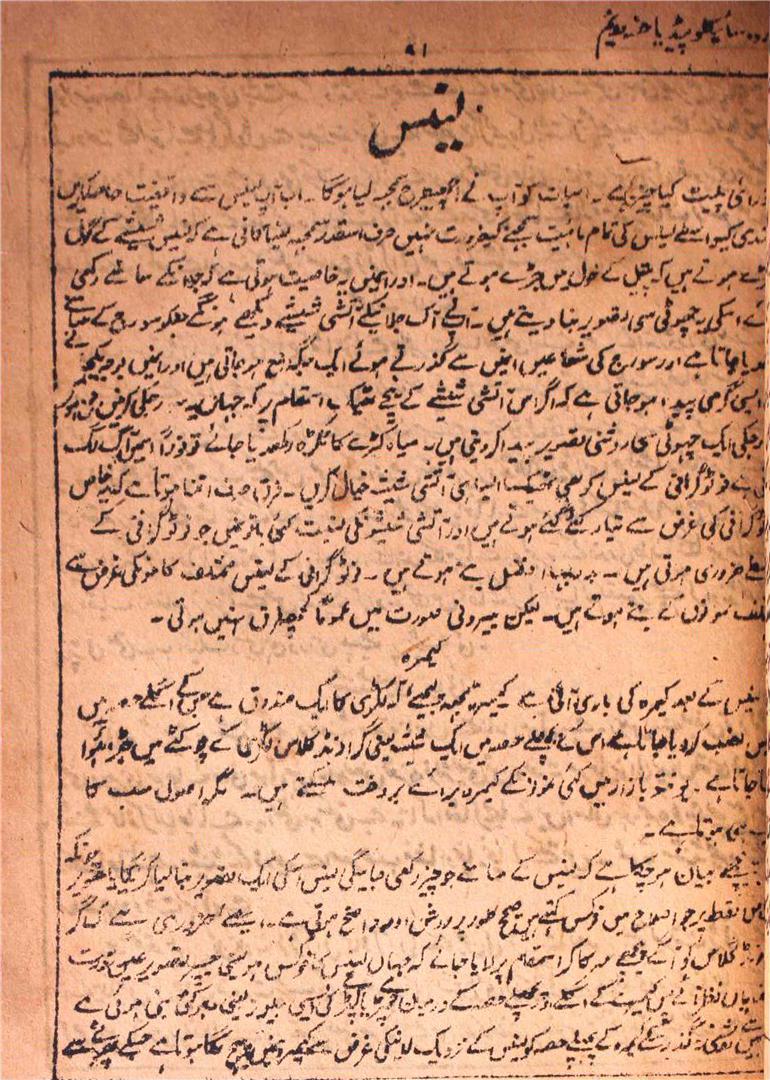 سائیکلو پیڈیا حصہ پنجم
۹۱
لینس
پلیٹ کیا چیز ہے۔ اس بات کو آپ نے اچھی طرح سمجھ لیا ہوگا۔ اب آپ لینس سے واقفیت حاصل کریں
لینس کی تمام ماہیت سمجھنے کی ضرورت نہیں صرف اسقدر سمجھ لینا کافی ہے کہ لینس شیشے کے گول
ہوتے ہیں کہ پیتل کے خول میں جڑے ہوتے ہیں۔ اور انمیں یہ خاصیت ہوتی ہے کہ جو چیز انکے سامنے رکھی
اسکی یہ چھوٹی سی تصویر بنا دیتے ہیں۔ آپنے آگ جلانیکے آتشی شیشے دیکھے ہونگے جنکو سورج کے سامنے
جاتا ہے اور سورج کی شعاعیں انمیں سے گذرتے ہوئے ایک جگہ جمع ہو جاتی ہیں اور انمیں
ایسی گرمی پیدا ہو جاتی ہے کہ اگر اس آتشی شیشے کے نیچے ٹھیک اسمقام پر کہ جہاں یہ سورج کی کرنیں جمع ہو کر
ایک چھوٹی سی روشنی تصویر پیدا کر دیتی ہیں۔ سیاہ کپڑے کا ٹکڑہ رکھدیا جائے تو فوراً اسمیں آگ لگ
فوٹوگرافی کے لینس کو بھی ٹھیک ایسا ہی آتشی شیشہ خیال کریں۔ فرق صرف اتنا ہوتا ہے کہ یہ خاص
فوٹو گرافی کی غرض سے تیار کئے گئے ہوتے ہیں اور آتشی شیشونکی نسبت کئی باتونمیں جو فوٹو گرافی کے
ضروری ہوتی ہیں۔ بدرجہا افضل بنے ہوتے ہیں۔ فوٹو گرافی کے لینس مختلف کامونکی غرض سے
مختلف نمونوں کے بنے ہوتے ہیں۔ لیکن بیرونی صورت میں عموماً کچھ فرق نہیں ہوتی۔
کیمرہ
لینس کے بعد کیمرہ کی باری آتی ہے۔ کیمرہ سمجھ لیجئے کہ لکڑی کا ایک صندوق ہے جس کے اگلے حصہ میں
لینس نصب کر دیا جاتا ہے اس کے پچھلے حصہ میں ایک شیشہ یعنی گراونڈ گلاس لکڑی کے چوکھٹے میں جڑا ہوا
جاتا ہے۔ یوں تو بازار میں کئی نمونونکے کیمرہ برائے فروخت ملتے ہیں۔ مگر اصول سب کا
ہی ہوتا ہے۔
پیچھے بیان ہو چکا ہے کہ لینس کے سامنے جو چیز رکھی جائیگی لینس اسکی ایک تصویر بنا لیا کریگا یا تصویر چونکہ
خاص نقطہ پر جو اصطلاح میں فوکس کہتے ہیں صحیح طور پر روشن اور واضح ہوتی ہے۔ اس لئے ضروری ہے کہ اگر
گراونڈ گلاس کو آگے پیچھے سرکا کر اسمقام پر لایا جائے کہ جہاں لینس کا فوکس ہو یعنی جہاں تصویر عین درست
نظر آئے پس کیمرے کے اگلے اور پچھلے حصہ کے درمیان چمڑا یا کپڑے کی ایسی بیلوز یعنی دھونکنی بنی ہوتی ہے
کیمرہ کے پچھلے حصہ کو لینس کے نزدیک لانیکی غرض سے کیمرہ میں پیچ لگا ہوتا ہے جسکے